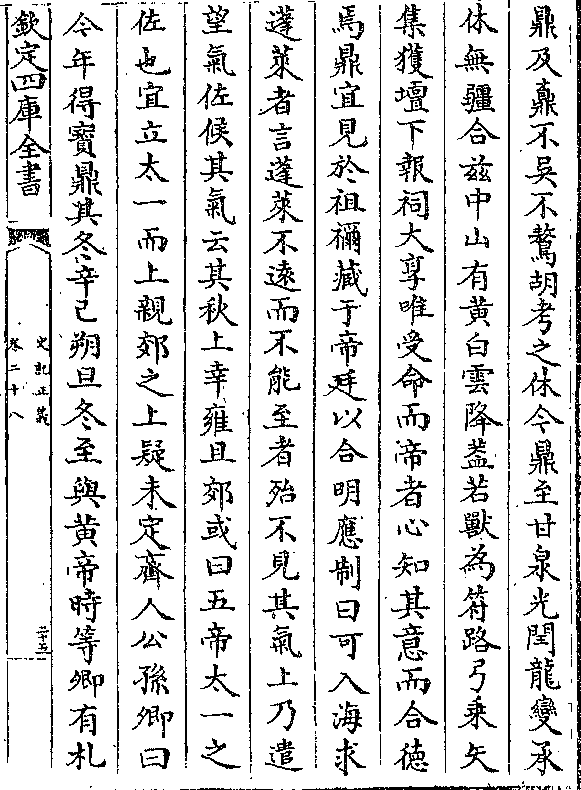 鼎及鼒不吳不驁胡考之休今鼎至甘泉光閏龍變承
休無疆合兹中山有黄白雲降葢若獸為符路弓乗矢
集獲壇下報祠大享唯受命而帝者心知其意而合徳
焉鼎宜見於祖禰藏于帝廷以合明應制曰可入海求
蓬萊者言蓬萊不逺而不能至者殆不見其氣上乃遣
望氣佐候其氣云其秋上幸雍且郊或曰五帝太一之
佐也宜立太一而上親郊之上疑未定齊人公孫卿曰
今年得寳鼎其冬辛己朔旦冬至與黄帝時等卿有札
欽定四庫全書
史記正義
卷二十八
二十五